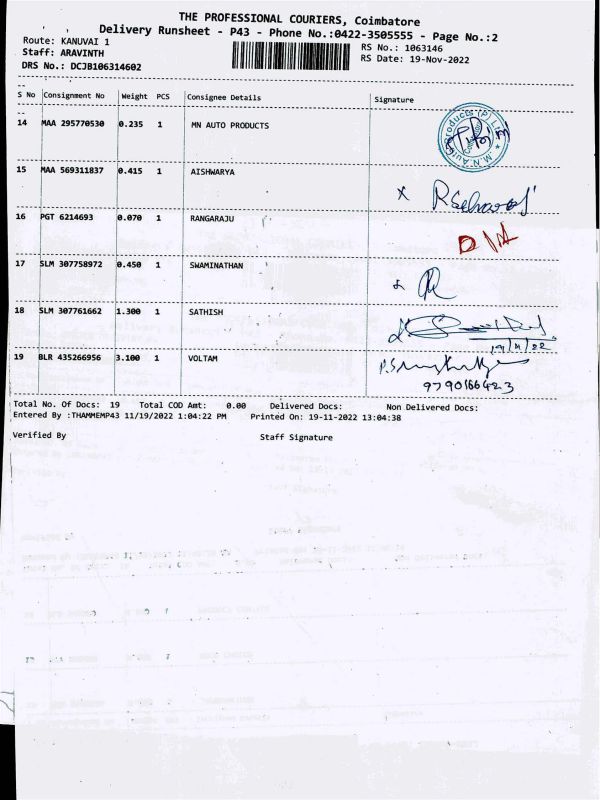 THE PROFESSIONAL COURIERS, Coimbatore
Delivery Runsheet - P43 - Phone No.:0422-3505555 - Page No.:2
Route: KANUVAI 1
RS No.: 1063146
Staff: ARAVINTH
RS Date: 19-Nov-2022
DRS No.: DCJB106314602
S No Consignment No Weight PCS Consignee Details Signature
14 MAA 295770530 0.235 1 MN AUTO PRODUCTS
15 MAA 569311837 0.415 1 AISHWARYA
16 PGT 6214693 0.070 1 RANGARAJU
17 SLM 307758972 0.450 1 SWAMINATHAN
18 SLM 307761662 1.300 1 SATHISH
19/11/22
19 BLR 435266956 3.100 1 VOLTAM
Total No. Of Docs: 19 Total COD Amt: 0.00 Delivered Docs: Non Delivered Docs:
Entered By :THAMMEMP43 11/19/2022 1:04:22 PM Printed On: 19-11-2022 13:04:38
Verified By Staff Signature